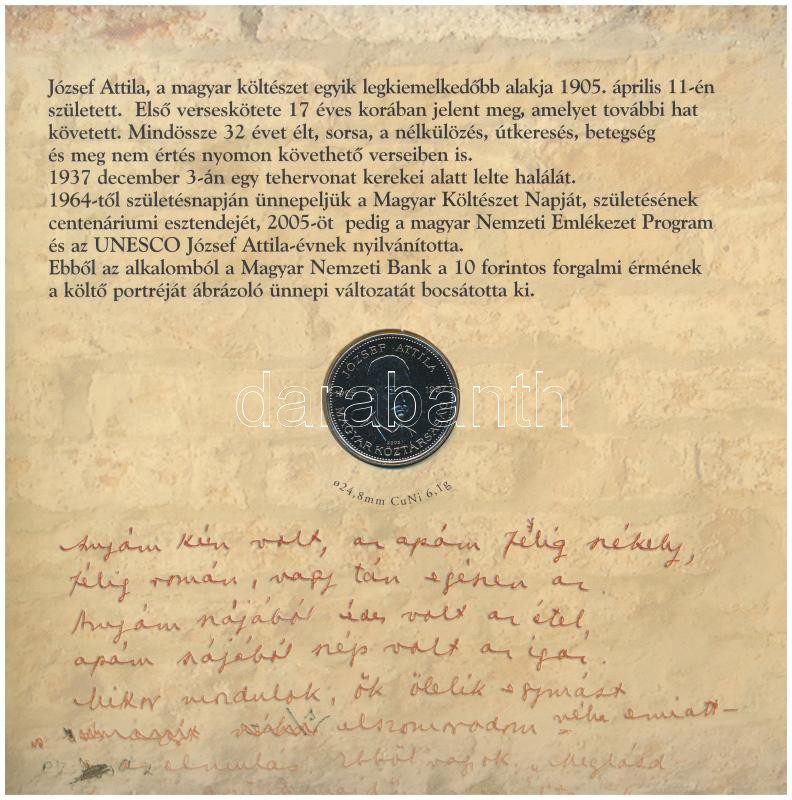 József Attila, a magyar költészet egyik legkiemelkedőbb alakja 1905. április 11-én
született. Első verseskötete 17 éves korában jelent meg, amelyet további hat
követett. Mindössze 32 évet élt, sorsa, a nélkülözés, útkeresés, betegség
és meg nem értés nyomon követhető verseiben is.
1937 december 3-án egy tehervonat kerekei alatt lelte halálát.
1964-től születésnapján ünnepeljük a Magyar Költészet Napját, születésének
centenáriumi esztendejét, 2005-öt pedig a magyar Nemzeti Emlékezet Program
és az UNESCO József Attila-évnek nyilvánította.
Ebből az alkalomból a Magyar Nemzeti Bank a 10 forintos forgalmi érmének
a költő portréját ábrázoló ünnepi változatát bocsátotta ki.
JÓZSEF ATTILA
MAGYAR KÖZTÁRSASÁG
2005
darabanth
ø24,8mm CuNi 6,1g
Anyám kún volt, az apám félig székely,
félig román, vagy tán egészen az.
Anyám szájából édes volt az étel,
apám szájából szép volt az igaz.
Mikor mozdulok, ők ölelik egymást
elszomorodom néha emiatt –
ez az elmulás. Ebből vagyok. "Meglásd